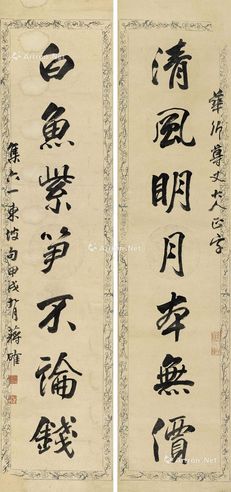 清風明月本無價
尊丈大人正字
白魚紫筍不論錢
集六一東坡句甲戌九月蔣確
Artron.Net